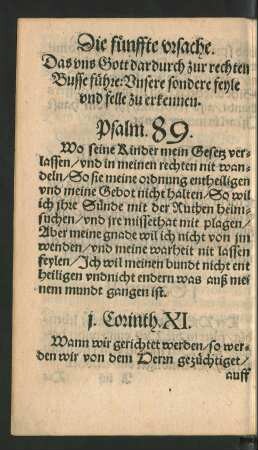 Die fünffte vrsache.
Das vns Gott dardurch zur rechten
Busse führe: Vnsere sondere feyle
vnd felle zu erkennen.
Psalm. 89.
Wo seine Kinder mein Gesetz ver-
lassen / vnd in meinen rechten nit wan-
deln / So sie meine ordnung entheiligen
vnd meine Gebot nicht halten / So wil
ich jhre Sünde mit der Ruthen heim-
suchen / vnd jre missethat mit plagen /
Aber meine gnade wil ich nicht von jm
wenden / vnd meine warheit nit lassen
feylen / Ich wil meinen bundt nicht ent
heiligen vndnicht endern was auß mei
nem mundt gangen ist.
j. Corinth. XI.
Wann wir gerichtet werden / so wer-
den wir von dem Herrn gezüchtiget /
auff